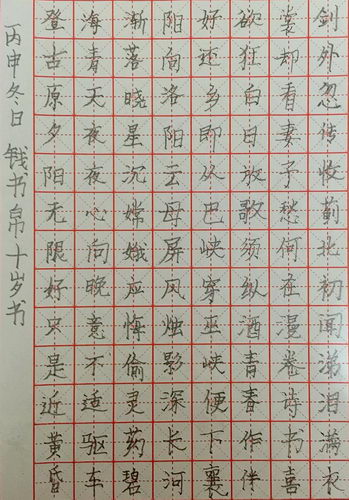 剑外忽传收蓟北初闻涕泪满衣
裳却看妻子愁何在漫卷诗书喜
欲狂白日放歌须纵酒青春作伴
好还乡即从巴峡穿巫峡便下襄
阳向洛阳云母屏风烛影深长河
渐落晓星沉嫦娥应悔偷灵药碧
海青天夜夜心向晚意不适驱车
登古原夕阳无限好只是近黄昏
丙申冬日 钱书帛十岁书